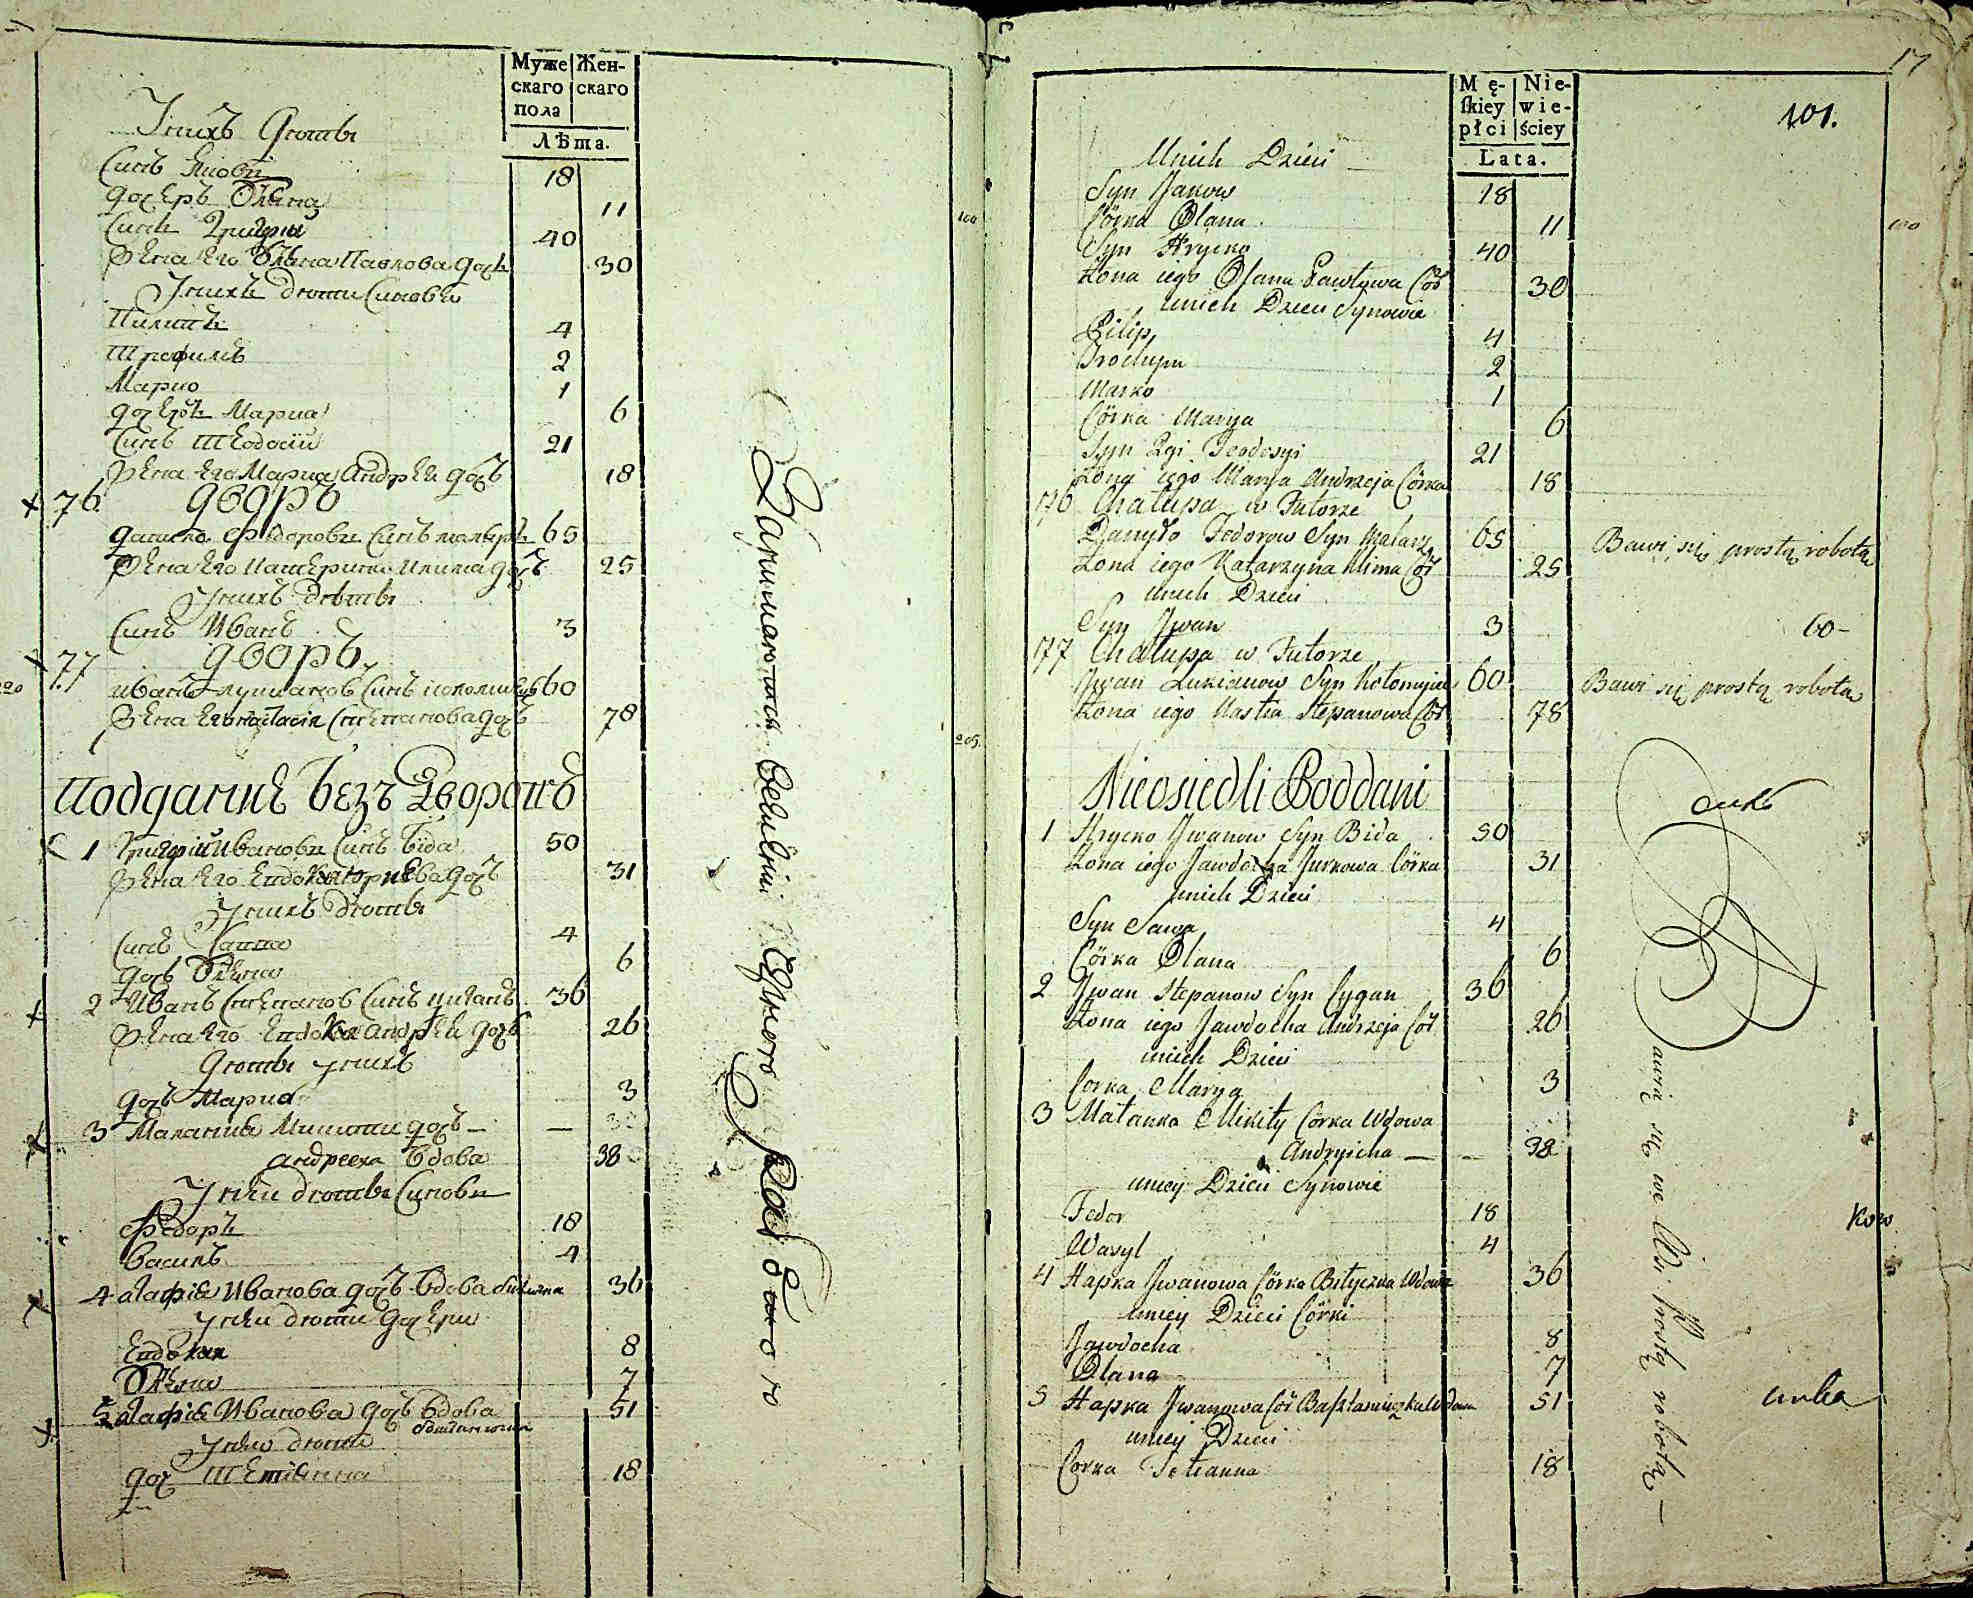 Муже Жен-
скаго скаго
пола
Лѣта.
Унихъ Дѣти
Синъ Яковъ 18
дочеръ Олена 11
Синъ Григри 40
Жена его Олена Павлова дочъ 30
Унихъ дѣти Синовъ
Пилипъ 4
Трофимъ 2
Марко 1
дочеръ Мариа 6
Синъ Теодосій 21
Жена его Мариа Андреи дочъ 18
76 дворъ
данило Федоровъ Синъ 65
Жена его Катерина Клима дочъ 25
Унихъ дѣти
Синъ Иванъ 3
77 дворъ
Иванъ лукиановъ Синъ 60
Жена его настасія Степанова дочъ 78
Подданиѣ безъ Дворовъ
1 Григрий Ивановъ Синъ Біда 50
Жена его Евдокия дочъ 31
Унихъ дѣти
Синъ Савва 4
дочъ Олена 6
2 Иванъ Степановъ Синъ циганъ 36
Жена его Евдокия Андреи дочъ 26
Дѣти унихъ
дочъ Мариа 3
3 Маланиа Микити дочъ —
андреева вдова 38
Унеи дѣти Синови
Федоръ 18
Василь 4
4 агафіа Иванова дочъ вдова 36
Унеи дѣти дочери
Евдокия 8
Олена 7
5 агафіа Иванова дочъ вдова 51
Унеи дѣти
доч Тетіанна 18
Занимаются черною Работою
17
101.
Mę- Nie-
skiey wie-
płci ściey
Lata.
Unich Dzieci
Syn Jakow 18
Córka Olana 11
Syn Hrycko 40
Żona iego Olana Pawłowa Cór 30
unich Dzieci Synowie
Pilip 4
Trochym 2
Marko 1
Córka Marya 6
Syn 2gi Teodosyi 21
Żona iego Marya Andrzeja Córka 18
76 Chałupa w Futorze
Danyło Fedorow Syn Malarz 65 Bawi się prostą robotą
Żona iego Katarzyna Klima Cór 25
unich Dzieci
Syn Jwan 3 60-
77 Chałupa w Futorze
Jwan Łukianow Syn Kołomyiec 60 Bawi się prostą robotą
Żona iego Nastia Stepanowa Cór 78
Nieosiedli Poddani
1 Hrycko Jwanow Syn Bida 50
Żona iego Jawdocha Jurkowa Córka 31
unich Dzieci
Syn Sawa 4
Córka Olana 6
2 Jwan Stepanow Syn Cygan 36
Żona iego Jawdocha Andrzeja Cór 26
unich Dzieci
Corka Marya 3
3 Małanka Mikity Corka Wdowa
Andryicha — 38
uniey Dzieci Synowie
Fedor 18
Wasyl 4
4 Hapka Jwanowa Córka Wdowa 36
uniey Dzieci Córki
Jawdocha 8
Olana 7
5 Hapka Jwanowa Cór 51
uniey Dzieci
Corka Tetianna 18
prostą robotą —